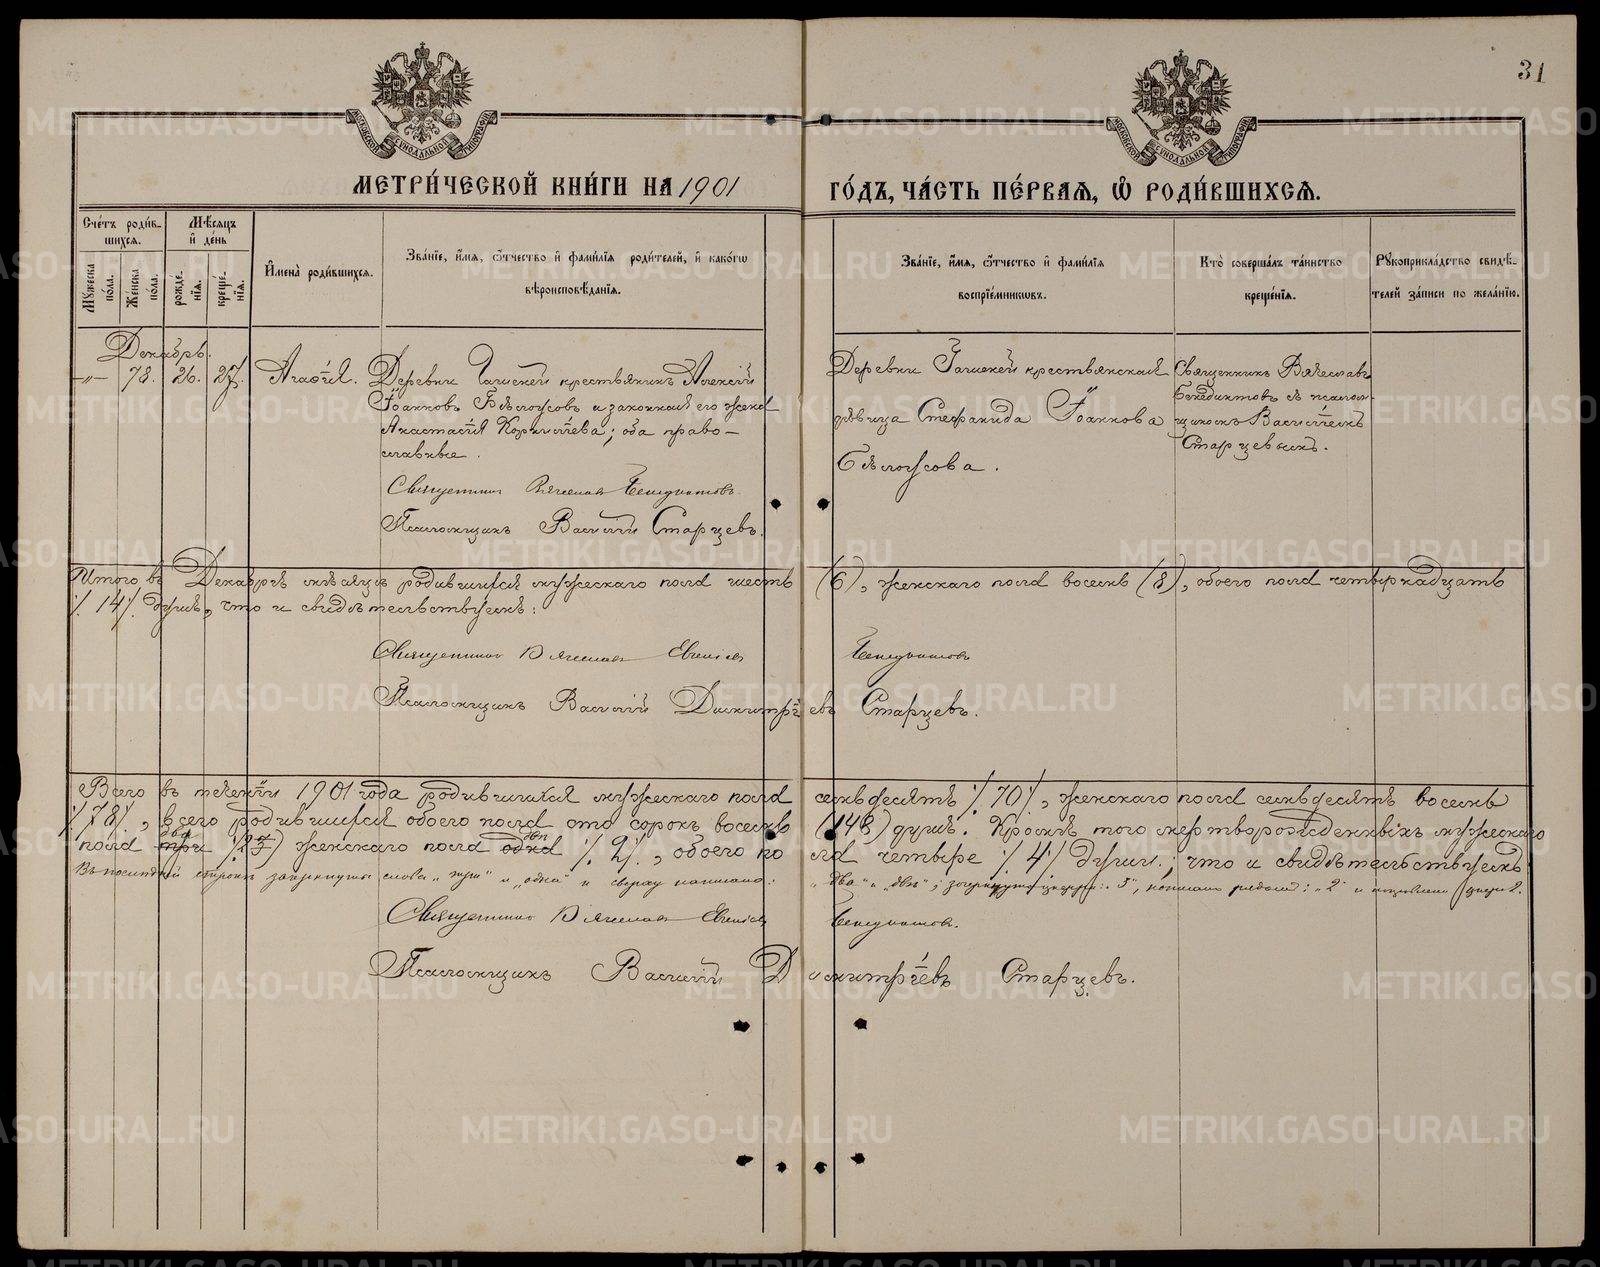 31
МОСКОВСКОЙ СУНОДАЛЬНОЙ ТИПОГРАФІИ
МОСКОВСКОЙ СУНОДАЛЬНОЙ ТИПОГРАФІИ
МЕТРИ́ЧЕСКОЙ КНИ́ГИ НА 1901 ГО́ДЪ, ЧА́СТЬ ПЕ́РВАЯ, Ѡ҆ РОДИ́ВШИХСЯ.
Сче́тъ роди́в-
шихся.
Мѣ́сяцъ
и҆ де́нь
Му́жеска
по́ла.
Же́нска
по́ла.
рожде́-
нїя.
креще́-
нїя.
И҆мена̀ роди́вшихся.
Зва́нїе, и҆́мя, ѻ҆́тчество и҆ фами́лїя роди́телей, и҆ како́гѡ
вѣроисповѣ́данїя.
Зва́нїе, и҆́мя, ѻ҆́тчество и҆ фами́лїя
воспрїе́мникѡвъ.
Кто̀ соверша́лъ та́инство
креще́нїя.
Рꙋкоприкла́дство свидѣ́-
телей за́писи по жела́нїю.
Декабрь.
—„— 78. 26. 27. Агаѳія.
Деревни крестьянинъ Алексій
Іоанновъ Бѣлоусовъ и законная его жена
Анастасія Корниліева; оба право—
славные.
Священникъ Вячеславъ Бенедиктовъ.
Псаломщикъ Василій Старцевъ.
Деревни крестьянская
дѣвица Стефанида Іоаннова
Бѣлоусова.
Священникъ Вячеславъ
Бенедиктовъ съ псалом-
щикомъ Василіемъ
Старцевымъ.
Итого въ Декабрѣ мѣсяцѣ родившихся мужескаго пола шесть (6), женскаго пола восемь (8), обоего пола четырнадцать
/. 14/. душъ, что и свидѣтельствуемъ:
Священникъ Вячеславъ Евгеніевъ Бенедиктовъ
Псаломщикъ Василій Димитріевъ Старцевъ.
Всего въ теченіи 1901 года родившихся мужескаго пола семьдесятъ /. 70/., женскаго пола семьдесятъ восемь
/. 78/., всего родившихся обоего пола сто сорокъ восемь (148) душъ. Кромѣ того мертворожденныхъ мужескаго
два двѣ
пола три /. 2 3) женскаго пола одна /. 2/., обоего пола четыре /. 4/. души.; что и свидѣтельствуемъ:
Въ послѣдней строкѣ зачеркнуты слова „три" и „одна" и сверху написано: „два" и „двѣ"; зачеркнута цифра: 3", написано рядомъ: „2" и цифра 2.
Священникъ Вячеславъ Евгеніевъ Бенедиктовъ.
Псаломщикъ Василій Димитріевъ Старцевъ.
METRIKI.GASO-URAL.RU